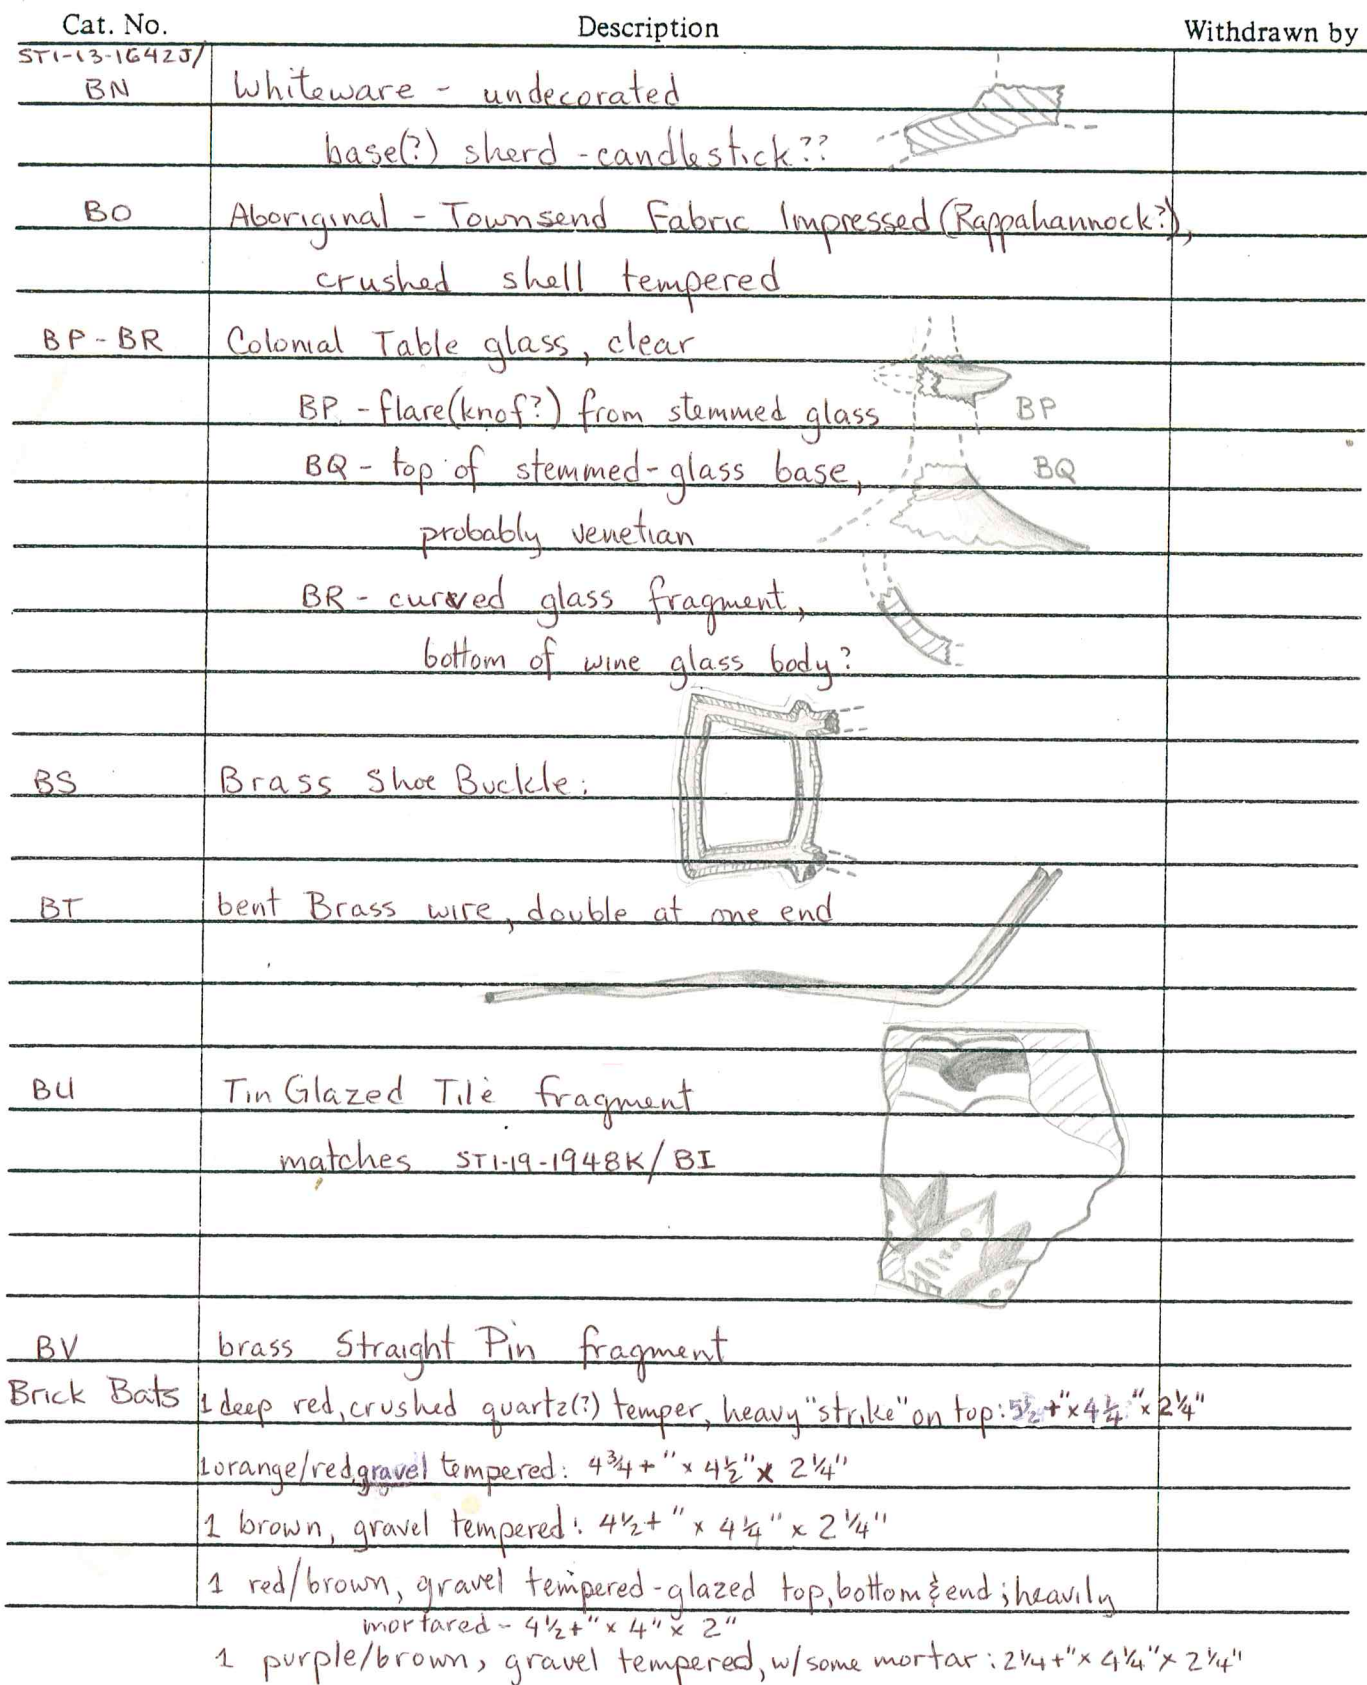 Cat. No. Description Withdrawn by
ST1-13-1642J/
BN Whiteware - undecorated
base(?) sherd - candlestick??
BO Aboriginal - Townsend Fabric Impressed (Rappahannock?),
crushed shell tempered
BP - BR Colonial Table glass, clear
BP - flare (knof?) from stemmed glass BP
BQ - top of stemmed-glass base, BQ
probably venetian
BR - curved glass fragment,
bottom of wine glass body?
BS Brass Shoe Buckle:
BT bent Brass wire, double at one end
BU Tin Glazed Tile fragment
matches ST1-19-1948K/BI
BV brass Straight Pin fragment
Brick Bats 1 deep red, crushed quartz(?) temper, heavy "strike" on top: 5½+" × 4¼" × 2¼"
1 orange/red, gravel tempered: 4¾+" × 4½" × 2¼"
1 brown, gravel tempered: 4½+" × 4¼" × 2¼"
1 red/brown, gravel tempered - glazed top, bottom & end; heavily
mortared - 4½+" × 4" × 2"
1 purple/brown, gravel tempered, w/some mortar: 2¼+" × 4¼" × 2¼"